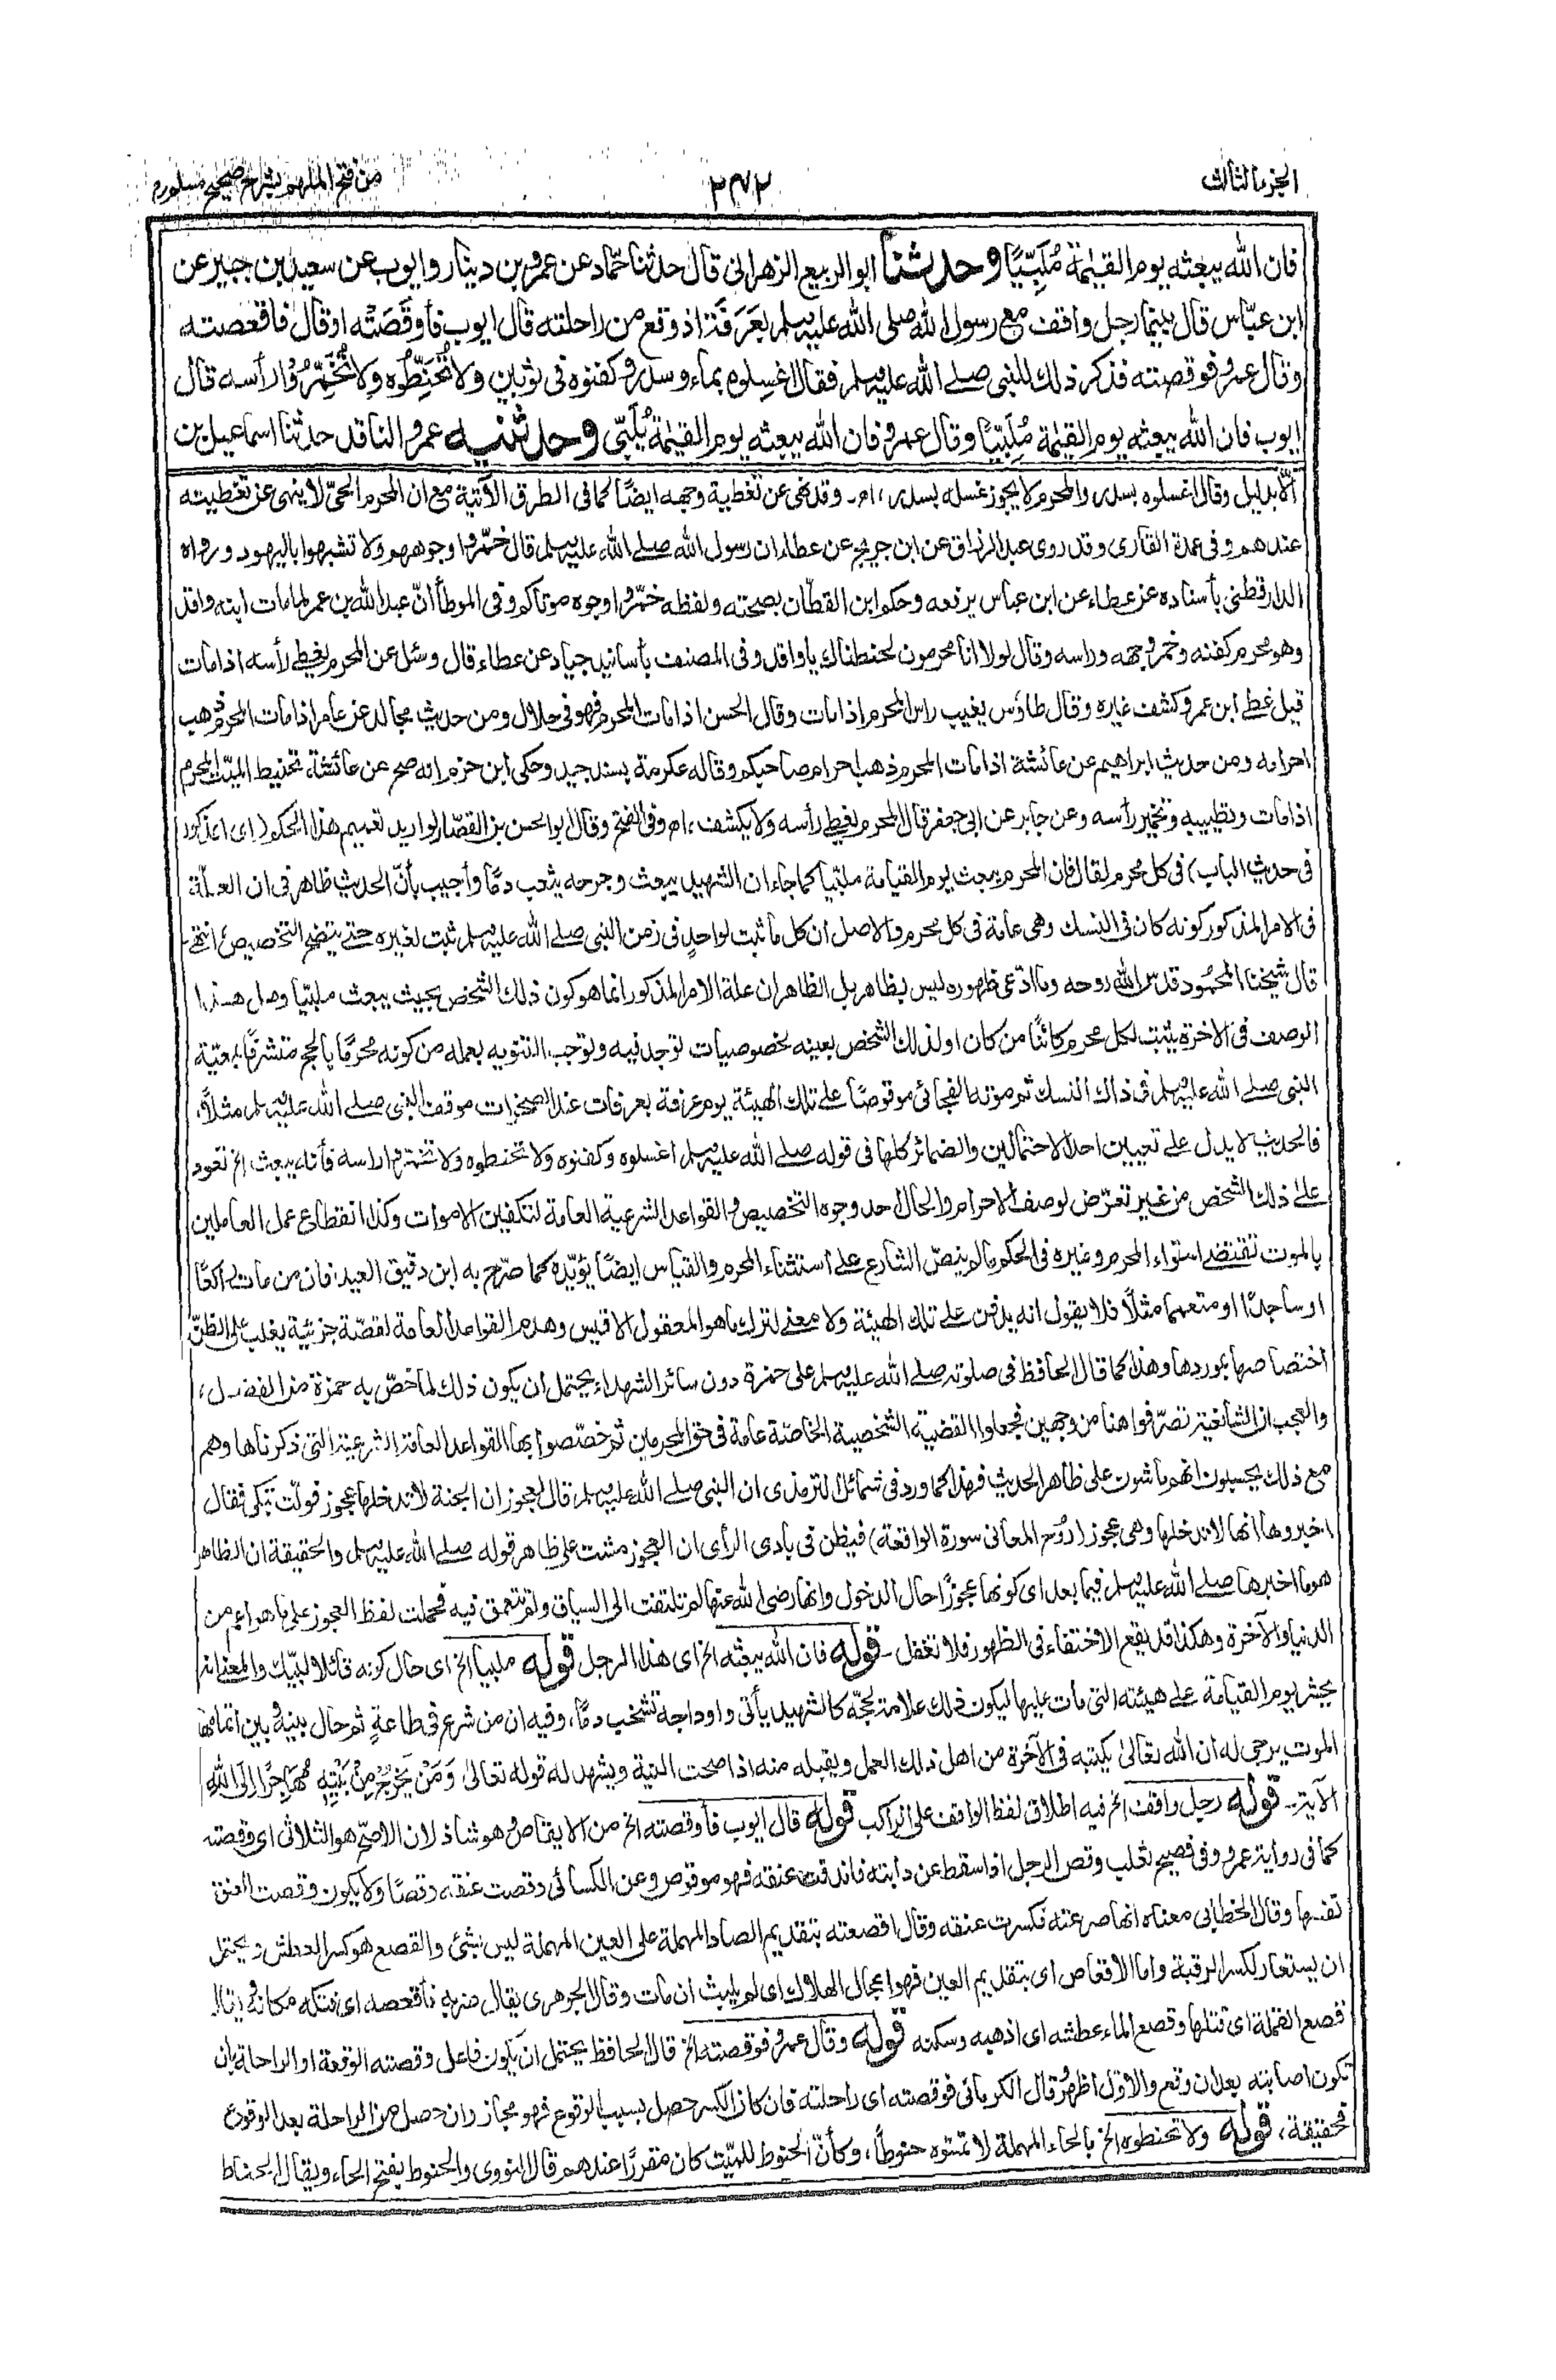 الجزء الثالث
٢٧٢
من فتح الملهم بشرح صحيح مسلم
فان الله يبعثه يوم القيٰمة مُلَبِّيًا وحدثنا ابو الربيع الزهرانی قال حدثنا حماد عن عمرو بن دينار وايوب عن سعيد بن جبير عن
ابن عبّاس قال بينما رجل واقف مع رسول الله صلی الله عليه وسلم بعَرَفَة اذ وقع من راحلته قال ايوب فأوقَصَتْه او قال فاقعصته
وقال عمرو فوقصته فذكر ذلك للنبی صلے الله عليه وسلم فقال اغسلوه بماء وسدر وكفنوه فی ثوبين ولا تُحَنِّطُوه ولا تُخَمِّرُوا رأسه قال
ايوب فان الله يبعثه يوم القيٰمة مُلَبِّيًا وقال عمرو فان الله يبعثه يوم القيٰمة يُلَبّی وحدثنيه عمرو الناقد حدثنا اسماعيل بن
الّا بدليل وقال اغسلوه بسدر والمحرم لا يجوز غسله بسدر، اه۔ وقد نهی عن تغطية وجهه ايضًا كما فی الطرق الآتية مع ان المحرم الحیّ لا ينهی عن تغطيته
عندهم وفی عمدة القاری وقد روی عبد الرزاق عن ابن جريج عن عطاء ان رسول الله صلے الله عليه وسلم قال خمّروا وجوههم ولا تشبهوا باليهود ورواه
الدارقطنی بأسناده عن عطاء عن ابن عباس يرفعه وحكم ابن القطّان بصحته ولفظه خمّروا وجوه موتاكم وفی الموطأ انّ عبد الله بن عمر لما مات ابنه واقد
وهو محرم كفنه وخمر وجهه وراسه وقال لولا انا محرمون لحنطناك يا واقد وفی المصنف بأسانيد جياد عن عطاء قال وسئل عن المحرم يغطی رأسه اذا مات
قيل غطے ابن عمر وكشف غيره وقال طاؤس يغيب راس المحرم اذا مات وقال الحسن اذا مات المحرم فهو فی حلال ومن حديث مجالد عن عامر اذا مات المحرم ذهب
احرامه ومن حديث ابراهيم عن عائشة اذا مات المحرم ذهب احرام صاحبكم وقاله عكرمة بسند جيد وحكی ابن حزم انه صح عن عائشة تحنيط الميّت المحرم
اذا مات وتطييبه وتخمير رأسه وعن جابر عن ابی جعفر قال المحرم يغطی رأسه ولا يكشف، اه وفی الفتح وقال ابو الحسن بن القصّار لو اريد تعميم هذا الحكم (ای المذكور
فی حديث الباب) فی كل محرم لقال فان المحرم يبعث يوم القيامة ملبّيا كما جاء ان الشهيد يبعث وجرحه يثعب دمًا وأجيب بأنّ الحديث ظاهر فی ان العلّة
فی الامر المذكور كونه كان فی النسك وهی عامة فی كل محرم والاصل ان كل ما ثبت لواحدٍ فی زمن النبی صلے الله عليه وسلم ثبت لغيره حتے يتضح التخصيص، انتهی
قال شيخنا المحمود قدس الله روحه وما ادّعی ظهوره ليس بظاهر بل الظاهر ان علة الامر المذكور انما هو كون ذلك الشخص بحيث يبعث ملبّيا وهل هذا
الوصف فی الاخرة يثبت لكل محرم كائنًا من كان او لذلك الشخص بعينه لخصوصيات توجد فيه وتوجب التنويه بعمله من كونه محرمًا بالحج متشرفًا بمعيّة
النبی صلے الله عليه وسلم فی ذاك النسك ثم موته الفجائی موقوصًا علے تلك الهيئة يوم عرفة بعرفات عند الصخرات موقف النبی صلے الله عليه وسلم مثلاً،
فالحديث لا يدل علے تعيين احد الاحتمالين والضمائر كلها فی قوله صلے الله عليه وسلم اغسلوه وكفنوه ولا تحنطوه ولا تخمّروا راسه فأنه يبعث الخ تعود
علیٰ ذلك الشخص من غير تعرّض لوصف الاحرام والحال احد وجوه التخصيص والقواعد الشرعية العامة لتكفين الاموات وكذا انقطاع عمل العاملين
بالموت تقتضے استواء المحرم وغيره فی الحكم ما لم ينصّ الشارع علے استثناء المحرم والقياس ايضًا يؤيّده كما صرّح به ابن دقيق العيد، فان من مات راكعًا
او ساجدًا او متعمما مثلاً فلا يقول انه يدفن علے تلك الهيئة ولا معنے لترك ما هو المعقول الاقيس وهدم القواعد العامة لقصّة جزئية يغلب علی الظنّ
اختصاصها بموردها وهذا كما قال الحافظ فی صلوته صلے الله عليه وسلم علی حمزة دون سائر الشهداء يحتمل ان يكون ذلك لما خصّ به حمزة من الفضل،
والعجب ان الشافعية تصرّفوا هنا من وجهين فجعلوا القضية الشخصية الخاصّة عامة فی حق المحرمين ثم خصّصوا بها القواعد العامة الشرعية التی ذكرناها وهم
مع ذلك يحسبون انهم ماشون علی ظاهر الحديث فهذا كما ورد فی شمائل الترمذی ان النبی صلے الله عليه وسلم قال لعجوز ان الجنة لا تدخلها عجوز فولّت تبكی فقال
اخبروها انها لا تدخلها وهی عجوز (روح المعانی سورة الواقعة) فيظن فی بادی الرأی ان العجوز مشت علی ظاهر قوله صلے الله عليه وسلم والحقيقة ان الظاهر
هو ما اخبرها صلے الله عليه وسلم فيما بعد ای كونها عجوزًا حال الدخول وانها رضی الله عنها لم تلتفت الی السياق ولم تتعمق فيه فحملت لفظ العجوز علی ما هو اعم من
الدنيا والآخرة وهكذا قد يقع الاختفاء فی الظهور فلا تغفل۔ قوله فان الله يبعثه الخ ای هذا الرجل قوله ملبيا الخ ای حال كونه قائلا لبيّك والمعنی انه
يحشر يوم القيامة علے هيئته التی مات عليها ليكون ذلك علامة لحجّه كالشهيد يأتی واوداجه تشخب دمًا، وفيه ان من شرع فی طاعةٍ ثم حال بينه وبين اتمامها
الموت يرجی له ان الله تعالیٰ يكتبه فی الآخرة من اهل ذلك العمل ويقبله منه اذا صحت النية ويشهد له قوله تعالیٰ وَمَنْ يَخْرُجْ مِنْ بَيْتِهٖ مُهَاجِرًا اِلَی اللهِ
الآية۔ قوله رجل واقف الخ فيه اطلاق لفظ الواقف علی الراكب قوله قال ايوب فأوقصته الخ من الايقاص وهو شاذ لان الاصحّ هو الثلاثی ای وقصته
كما فی رواية عمرو وفی فصيح ثعلب وقص الرجل اذا سقط عن دابته فاندقت عنقه فهو موقوص وعن الكسائی وقصت عنقه وقصًا ولا يكون وقصت العنق
نفسها وقال الخطابی معناه انها صرعته فكسرت عنقه وقال اقصعته بتقديم الصاد المهملة علی العين المهملة ليس بشیء والقصع هو كسر العطش ويحتمل
ان يستعار لكسر الرقبة واما الاقعاص ای بتقديم العين فهو اعجال الهلاك ای لم يلبث ان مات وقال الجوهری يقال ضربه فأقعصه ای قتله مكانه ويقال
قصع القملة ای قتلها وقصع الماء عطشه ای اذهبه وسكنه قوله وقال عمرو فوقصته الخ قال الحافظ يحتمل ان يكون فاعل وقصته الوقعة او الراحلة بان
تكون اصابته بعد ان وقع والاول اظهر وقال الكرمانی فوقصته ای راحلته فان كان الكسر حصل بسبب الوقوع فهو مجاز وان حصل من الراحلة بعد الوقوع
فحقيقة، قوله ولا تحنطوه الخ بالحاء المهملة لا تمسّوه حنوطًا، وكأنّ الحنوط للميّت كان مقررًا عندهم قال النووی والحنوط بفتح الحاء ويقال الحناط